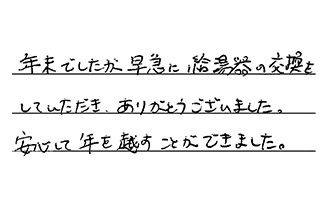 年末でしたが、早急に給湯器の交換を
していただき、ありがとうございました。
安心して年を越すことができました。